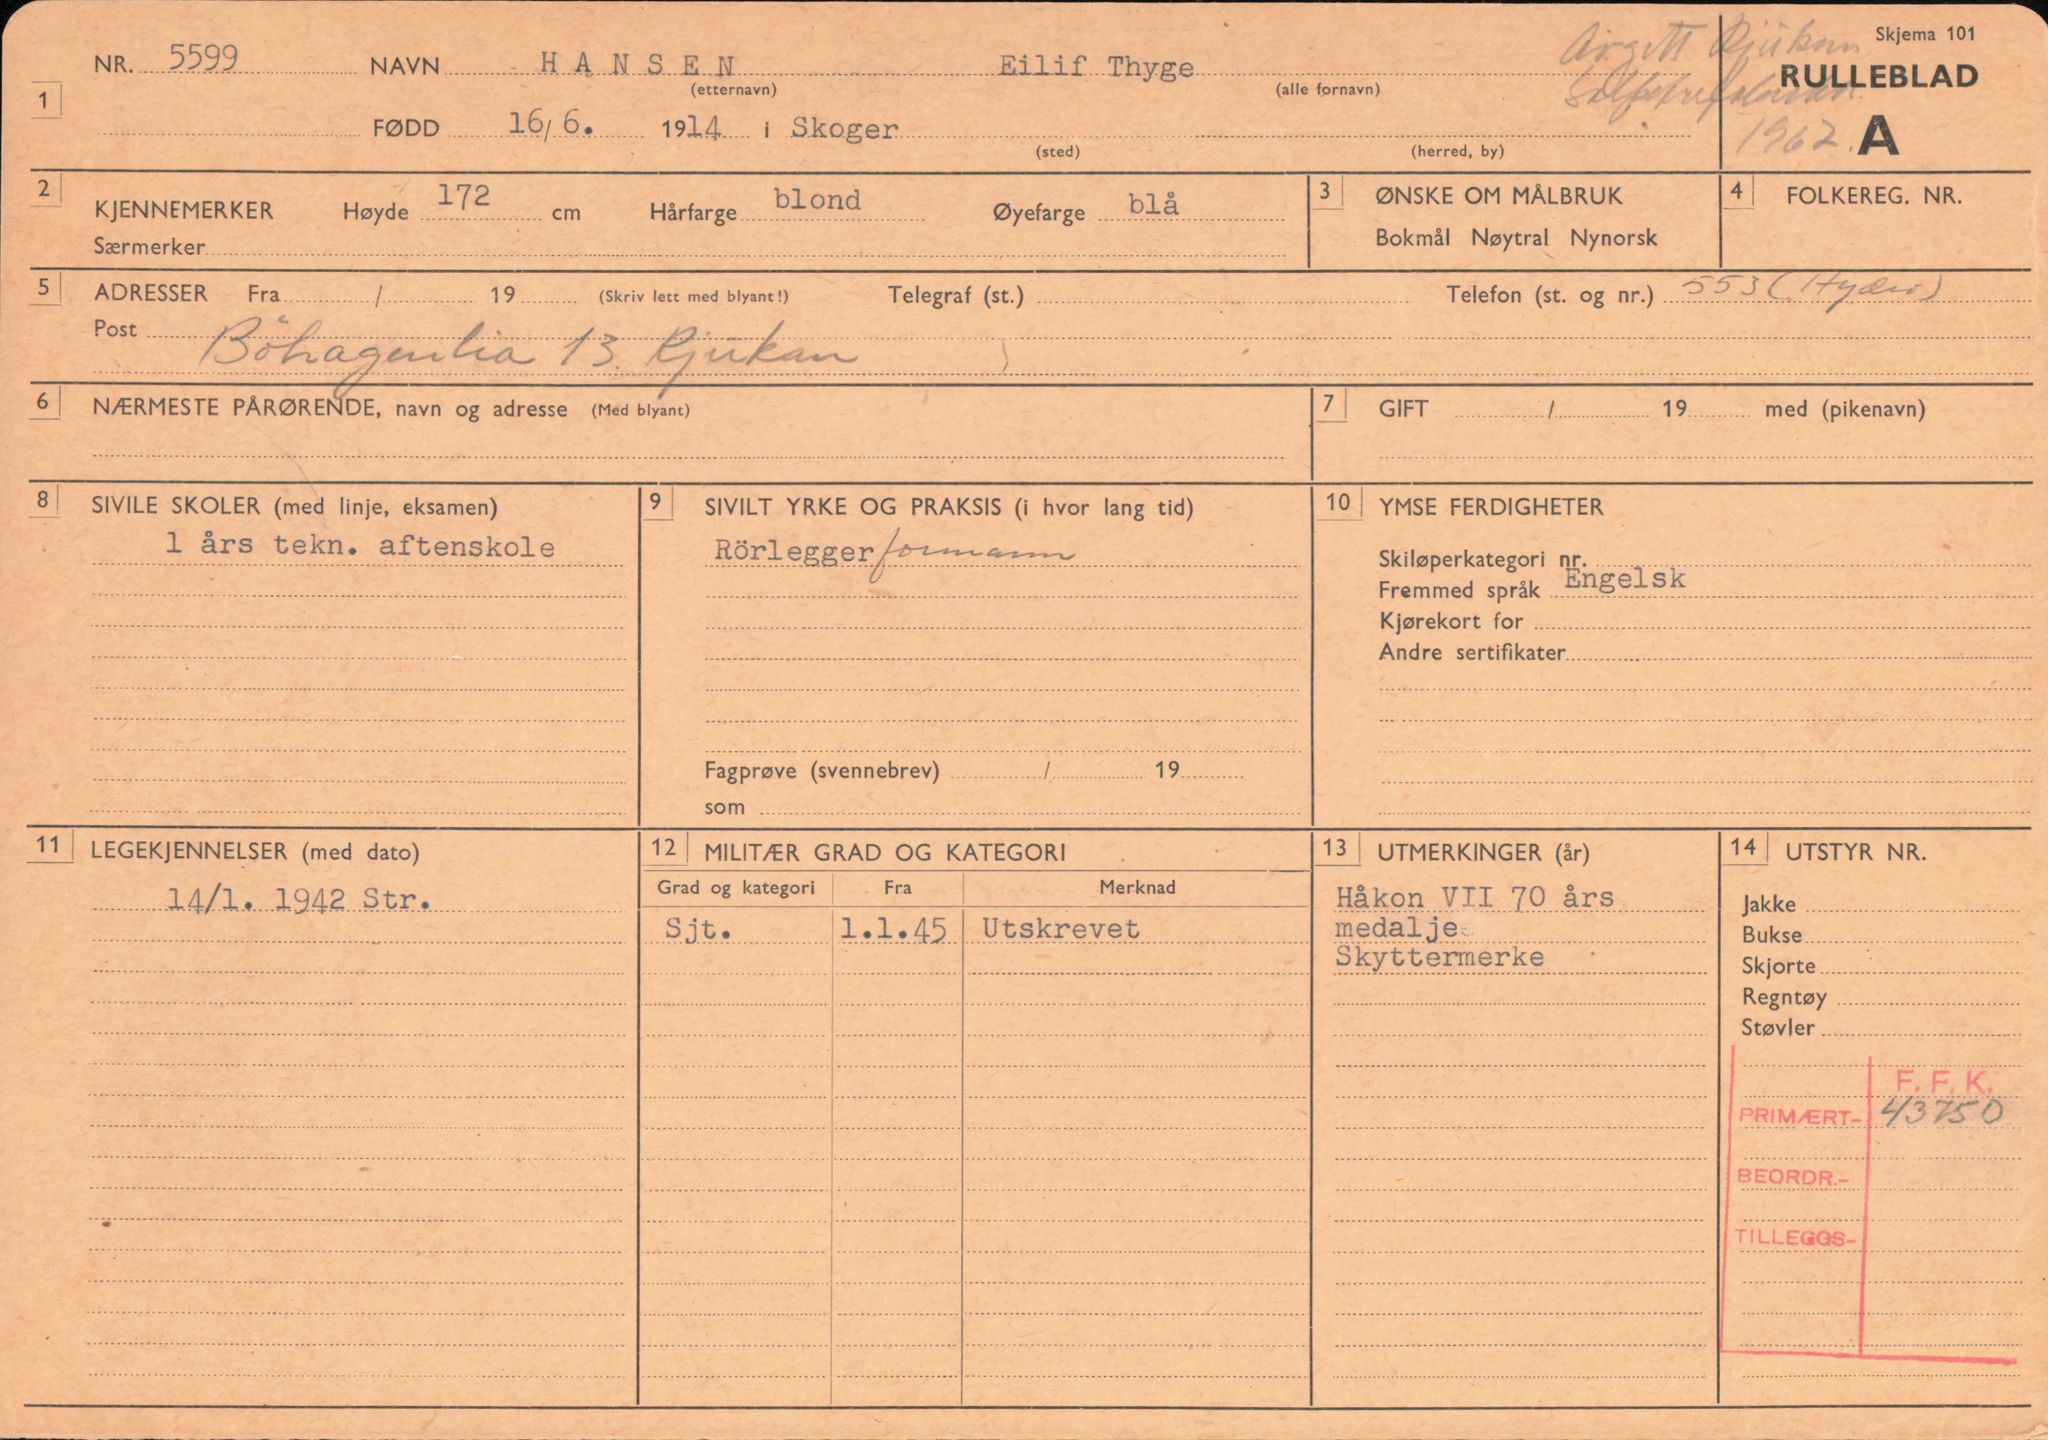 NR. 5599 NAVN HANSEN Eilif Thyge Skjema 101
(etternavn) (alle fornavn) RULLEBLAD
1 FØDD 16/6. 1914 i Skoger
(sted) (herred, by) 1962. A
2 KJENNEMERKER Høyde 172 cm Hårfarge blond Øyefarge blå
Særmerker
3 ØNSKE OM MÅLBRUK
Bokmål Nøytral Nynorsk
4 FOLKEREG. NR.
5 ADRESSER Fra / 19 (Skriv lett med blyant!) Telegraf (st.) Telefon (st. og nr.) 553 (Hydro)
Post Böhagenlia 13 Rjukan
6 NÆRMESTE PÅRØRENDE, navn og adresse (Med blyant)
7 GIFT / 19 med (pikenavn)
8 SIVILE SKOLER (med linje, eksamen)
1 års tekn. aftenskole
9 SIVILT YRKE OG PRAKSIS (i hvor lang tid)
Rörlegger formann
Fagprøve (svennebrev) / 19
som
10 YMSE FERDIGHETER
Skiløperkategori nr.
Fremmed språk Engelsk
Kjørekort for
Andre sertifikater
11 LEGEKJENNELSER (med dato)
14/1. 1942 Str.
12 MILITÆR GRAD OG KATEGORI
Grad og kategori Fra Merknad
Sjt. 1.1.45 Utskrevet
13 UTMERKINGER (år)
Håkon VII 70 års
medalje
Skyttermerke
14 UTSTYR NR.
Jakke
Bukse
Skjorte
Regntøy
Støvler
F. F. K.
PRIMÆRT- 43750
BEORDR.-
TILLEGGS-